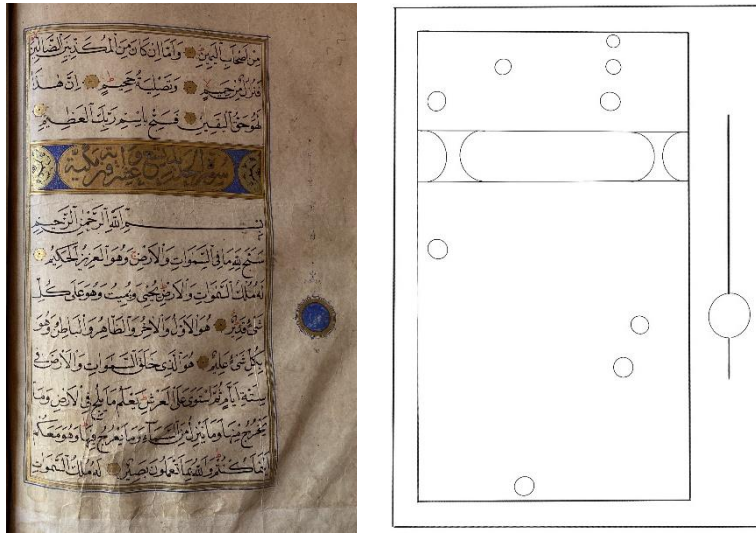 مِنْ اَصْحَابِ الْيَمِينِ وَاَمَّا اِنْ كَانَ مِنَ الْمُكَذِّبِينَ الضَّالِّينَ
فَنُزُلٌ مِنْ حَمِيمٍ وَتَصْلِيَةُ جَحِيمٍ اِنَّ هٰذَا
لَهُوَ حَقُّ الْيَقِينِ فَسَبِّحْ بِاسْمِ رَبِّكَ الْعَظِيمِ
سورة الحديد تسع و اية مكية
بِسْمِ اللّٰهِ الرَّحْمٰنِ الرَّحِيمِ
سَبَّحَ لِلّٰهِ مَا فِي السَّمٰوَاتِ وَالْاَرْضِ وَهُوَ الْعَزِيزُ الْحَكِيمُ
لَهُ مُلْكُ السَّمٰوَاتِ وَالْاَرْضِ يُحْيِي وَيُمِيتُ وَهُوَ عَلَى كُلِّ
شَيْءٍ قَدِيرٌ هُوَ الْاَوَّلُ وَالْاٰخِرُ وَالظَّاهِرُ وَالْبَاطِنُ وَهُوَ
بِكُلِّ شَيْءٍ عَلِيمٌ هُوَ الَّذِي خَلَقَ السَّمٰوَاتِ وَالْاَرْضَ فِي
سِتَّةِ اَيَّامٍ ثُمَّ اسْتَوَى عَلَى الْعَرْشِ يَعْلَمُ مَا يَلِجُ فِي الْاَرْضِ وَمَا
يَخْرُجُ مِنْهَا وَمَا يَنْزِلُ مِنَ السَّمَاءِ وَمَا يَعْرُجُ فِيهَا وَهُوَ مَعَكُمْ
اَيْنَمَا كُنْتُمْ وَاللّٰهُ بِمَا تَعْمَلُونَ بَصِيرٌ لَهُ مُلْكُ السَّمٰوَاتِ